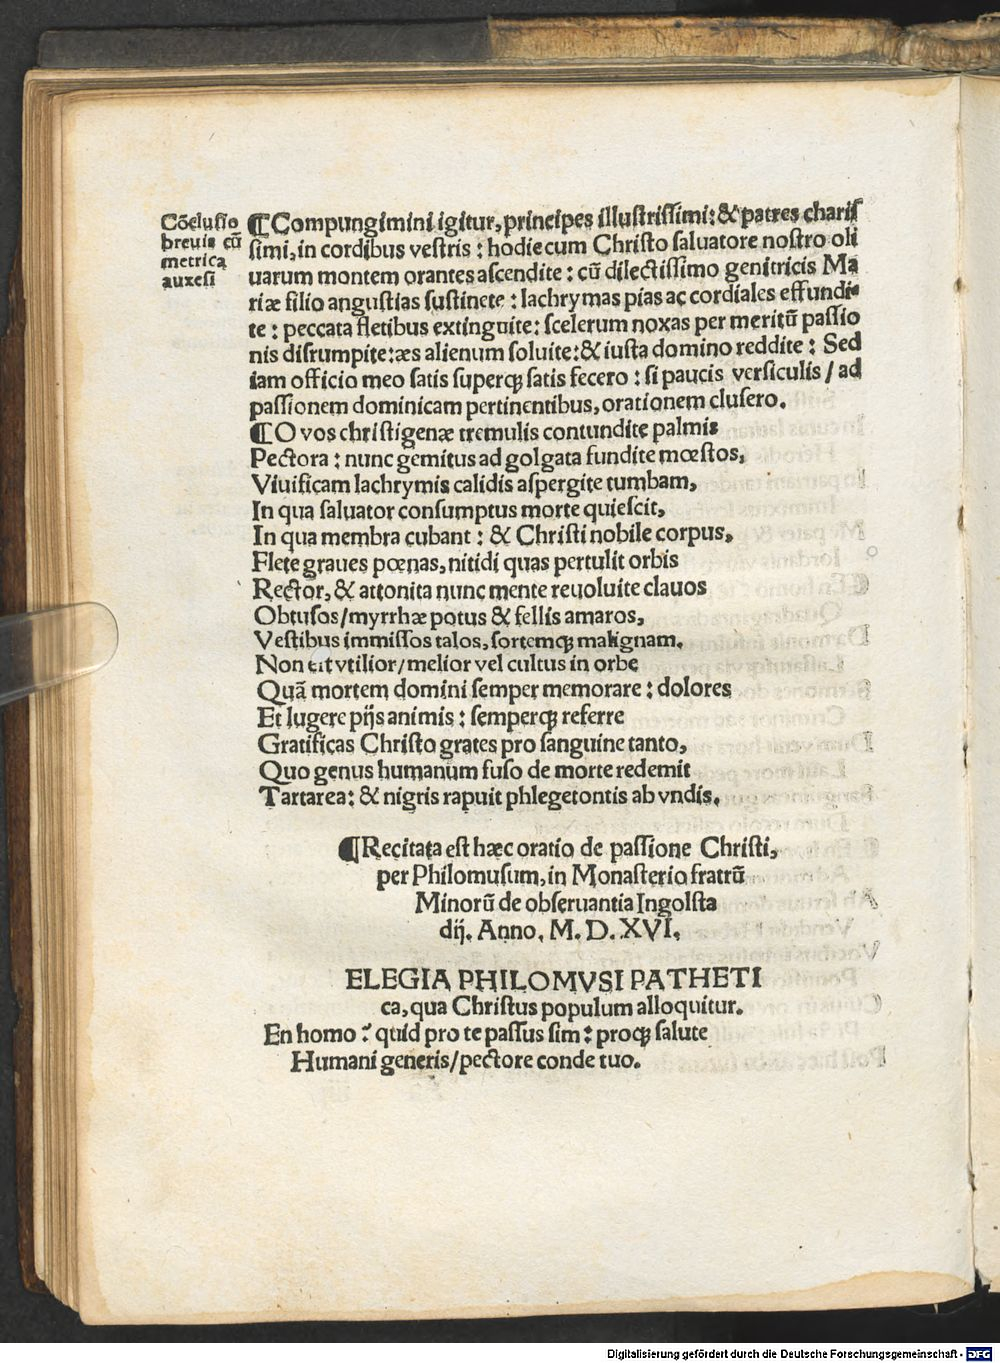 Cõclusio
breuis cũ
metrica
auxesi
¶Compungimini igitur, principes illustrissimi: & patres charis
simi, in cordibus vestris: hodie cum Christo saluatore nostro oli
uarum montem orantes ascendite: cũ dilectissimo genitricis Ma
riæ filio angustias sustinete: lachrymas pias ac cordiales effundi-
te: peccata fletibus extinguite: scelerum noxas per meritũ passio
nis disrumpite: æs alienum soluite: & iusta domino reddite: Sed
iam officio meo satis superqꝫ satis fecero: si paucis versiculis / ad
passionem dominicam pertinentibus, orationem clusero.
¶O vos christigenæ tremulis contundite palmis
Pectora: nunc gemitus ad golgata fundite mœstos,
Viuificam lachrymis calidis aspergite tumbam,
In qua saluator consumptus morte quiescit,
In qua membra cubant: & Christi nobile corpus,
Flete graues pœnas, nitidi quas pertulit orbis
Rector, & attonita nunc mente reuoluite clauos
Obtusos/myrrhæ potus & fellis amaros,
Vestibus immissos talos, sortemqꝫ malignam.
Non sit vtilior/melior vel cultus in orbe
Quã mortem domini semper memorare: dolores
Et lugere pijs animis: semperqꝫ referre
Gratificas Christo grates pro sanguine tanto,
Quo genus humanum fuso de morte redemit
Tartarea: & nigris rapuit phlegetontis ab vndis.
¶Recitata est hæc oratio de passione Christi,
per Philomusum, in Monasterio fratrũ
Minorũ de obseruantia Ingolsta
dij. Anno. M. D. XVI.
ELEGIA PHILOMVSI PATHETI
ca, qua Christus populum alloquitur.
En homo: quid pro te passus sim: proqꝫ salute
Humani generis/pectore conde tuo.
Digitalisierung gefördert durch die Deutsche Forschungsgemeinschaft - DFG